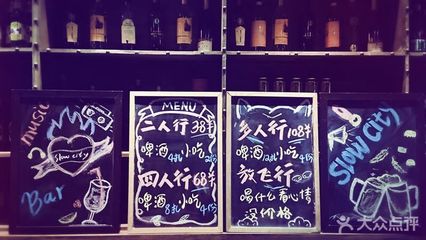 music
Slow city
Bar
MENU
二人行38半
啤酒4瓶小吃2份
四人行68半
啤酒8瓶小吃4份
多人行108半
啤酒12瓶小吃4份
放飞行
喝什么看心情
没价格
Slow City
大众点评